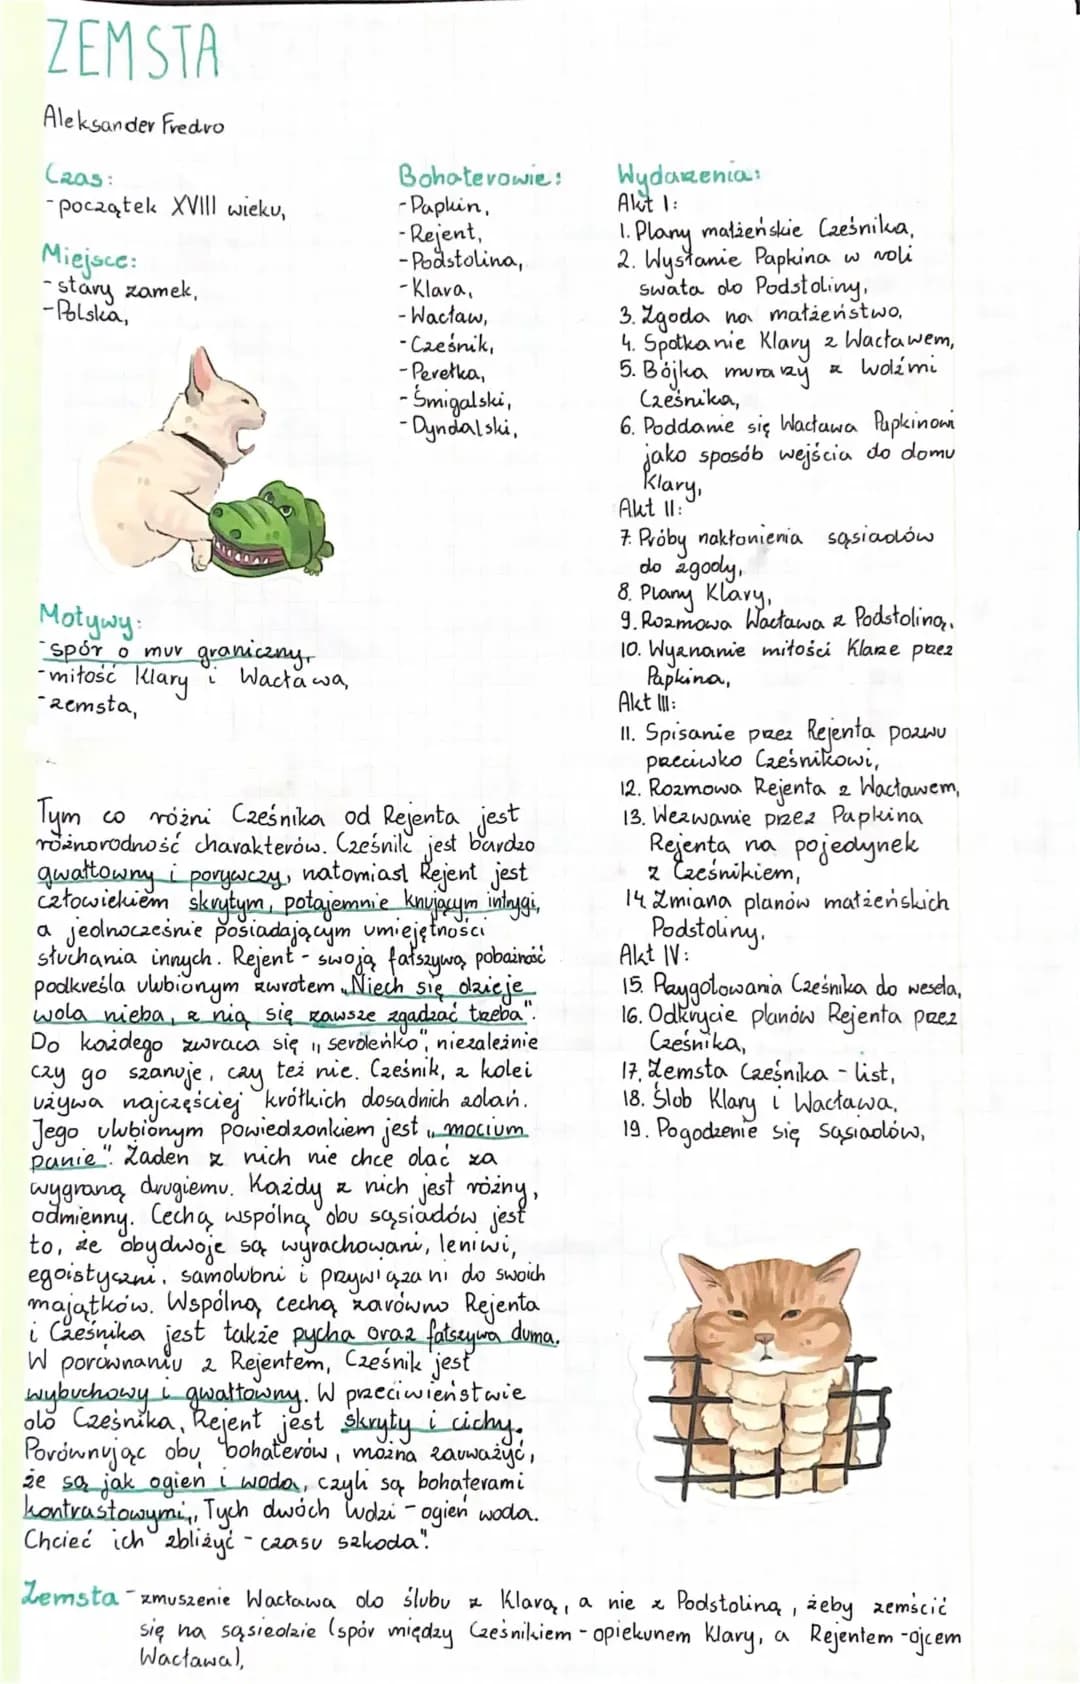 ZEMSTA
Aleksander Fredro
Czas:
- początek XVIII wieku,
Miejsce:
- stary zamek,
- Polska,
Motywy:
- spór o mur graniczny,
- miłość Klary i Wacława,
- zemsta,
Bohaterowie:
- Papkin,
- Rejent,
- Podstolina,
- Klara,
- Wacław,
- Cześnik,
- Perełka,
- Śmigalski,
- Dyndalski,
Wydarzenia:
Akt I:
1. Plany małżeńskie Cześnika,
2. Wysłanie Papkina w roli
swata do Podstoliny,
3. Zgoda na małżeństwo,
4. Spotkanie Klary z Wacławem,
5. Bójka murarzy z ludźmi
Cześnika,
6. Poddanie się Wacława Papkinowi
jako sposób wejścia do domu
Klary,
Akt II:
7. Próby nakłonienia sąsiadów
do zgody,
8. Plany Klary,
9. Rozmowa Wacława z Podstoliną,
10. Wyznanie miłości Klarze przez
Papkina,
Akt III:
11. Spisanie przez Rejenta pozwu
przeciwko Cześnikowi,
12. Rozmowa Rejenta z Wacławem,
13. Wezwanie przez Papkina
Rejenta na pojedynek
z Cześnikiem,
14. Zmiana planów małżeńskich
Podstoliny,
Akt IV:
15. Przygotowania Cześnika do wesela,
16. Odkrycie planów Rejenta przez
Cześnika,
17. Zemsta Cześnika - list,
18. Ślub Klary i Wacława,
19. Pogodzenie się sąsiadów,
Tym co różni Cześnika od Rejenta jest
różnorodność charakterów. Cześnik jest bardzo
gwałtowny i porywczy, natomiast Rejent jest
człowiekiem skrytym, potajemnie knującym intrygi,
a jednocześnie posiadającym umiejętności
słuchania innych. Rejent - swoją fałszywą pobożność
podkreśla ulubionym zwrotem „Niech się dzieje
wola nieba, z nią się zawsze zgadzać trzeba".
Do każdego zwraca się „serdeńko", niezależnie
czy go szanuje, czy też nie. Cześnik, z kolei
używa najczęściej krótkich dosadnich zdań.
Jego ulubionym powiedzonkiem jest „mocium
panie". Żaden z nich nie chce dać za
wygraną drugiemu. Każdy z nich jest różny,
odmienny. Cechą wspólną obu sąsiadów jest
to, że obydwoje są wyrachowani, leniwi,
egoistyczni, samolubni i przywiązani do swoich
majątków. Wspólną cechą zarówno Rejenta
i Cześnika jest także pycha oraz fałszywa duma.
W porównaniu z Rejentem, Cześnik jest
wybuchowy i gwałtowny. W przeciwieństwie
do Cześnika, Rejent jest skryty i cichy.
Porównując obu bohaterów, można zauważyć,
że są jak ogień i woda, czyli są bohaterami
kontrastowymi „Tych dwóch ludzi - ogień woda.
Chcieć ich zbliżyć - czasu szkoda".
Zemsta - zmuszenie Wacława do ślubu z Klarą, a nie z Podstoliną, żeby zemścić
się na sąsiedzie (spór między Cześnikiem - opiekunem Klary, a Rejentem - ojcem
Wacława),